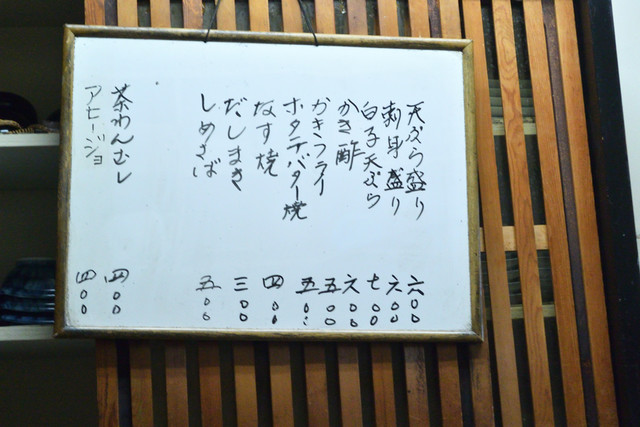 天ぷら盛り 六〇〇
刺身盛り 六〇〇
白子天ぷら 七〇〇
かき酢 六〇〇
かきフライ 五〇〇
ホタテバター焼 五〇〇
なす焼 四〇〇
だしまき 三〇〇
しめさば 五〇〇
茶わんむし 四〇〇
アヒージョ 四〇〇